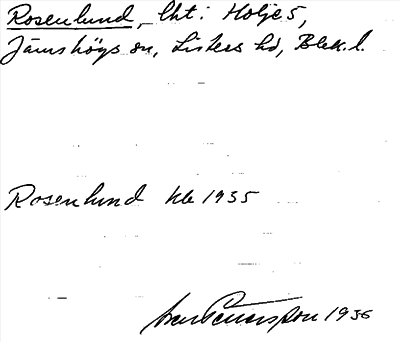 Rosenlund, lht: Holje 5,
Jämshögs sn, Listers hd, Blek. l.
Rosenlund kb 1935
1936